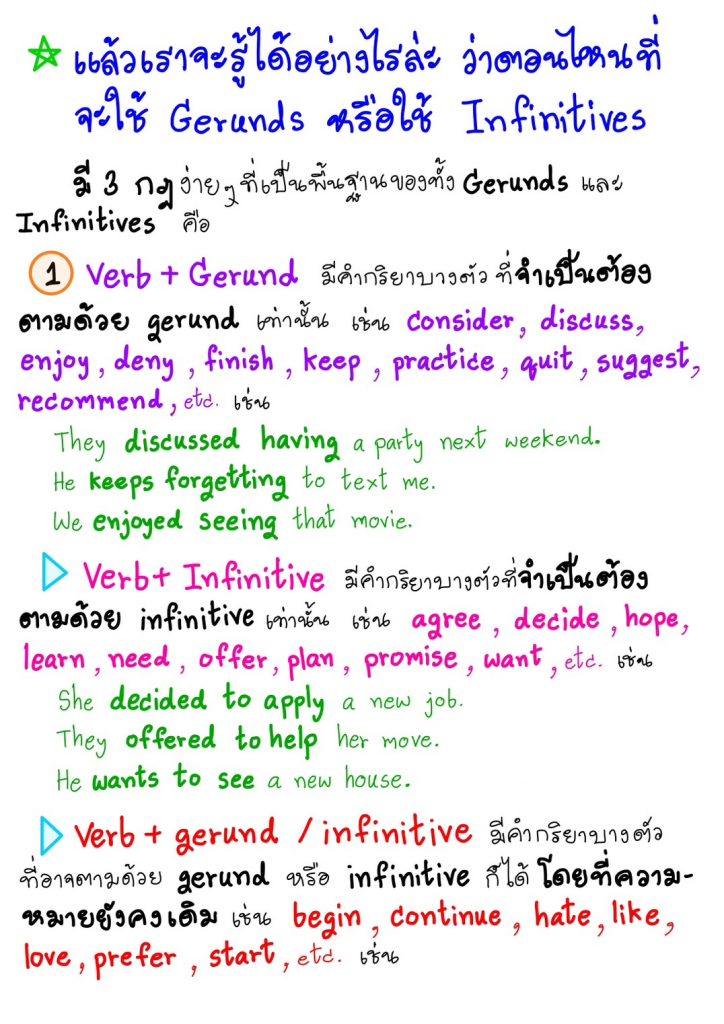 แล้วเราจะรู้ได้อย่างไรล่ะ ว่าตอนไหนที่
จะใช้ Gerunds หรือใช้ Infinitives
มี 3 กฎง่ายๆ ที่เป็นพื้นฐานของทั้ง Gerunds และ
Infinitives คือ
1 Verb + Gerund มีคำกริยาบางตัว ที่จำเป็นต้อง
ตามด้วย gerund เท่านั้น เช่น consider, discuss,
enjoy, deny, finish, keep, practice, quit, suggest,
recommend, etc. เช่น
They discussed having a party next weekend.
He keeps forgetting to text me.
We enjoyed seeing that movie.
Verb + Infinitive มีคำกริยาบางตัวที่จำเป็นต้อง
ตามด้วย infinitive เท่านั้น เช่น agree, decide, hope,
learn, need, offer, plan, promise, want, etc. เช่น
She decided to apply a new job.
They offered to help her move.
He wants to see a new house.
Verb + gerund / infinitive มีคำกริยาบางตัว
ที่อาจตามด้วย gerund หรือ infinitive ก็ได้ โดยที่ความ-
หมายยังคงเดิม เช่น begin, continue, hate, like,
love, prefer, start, etc. เช่น